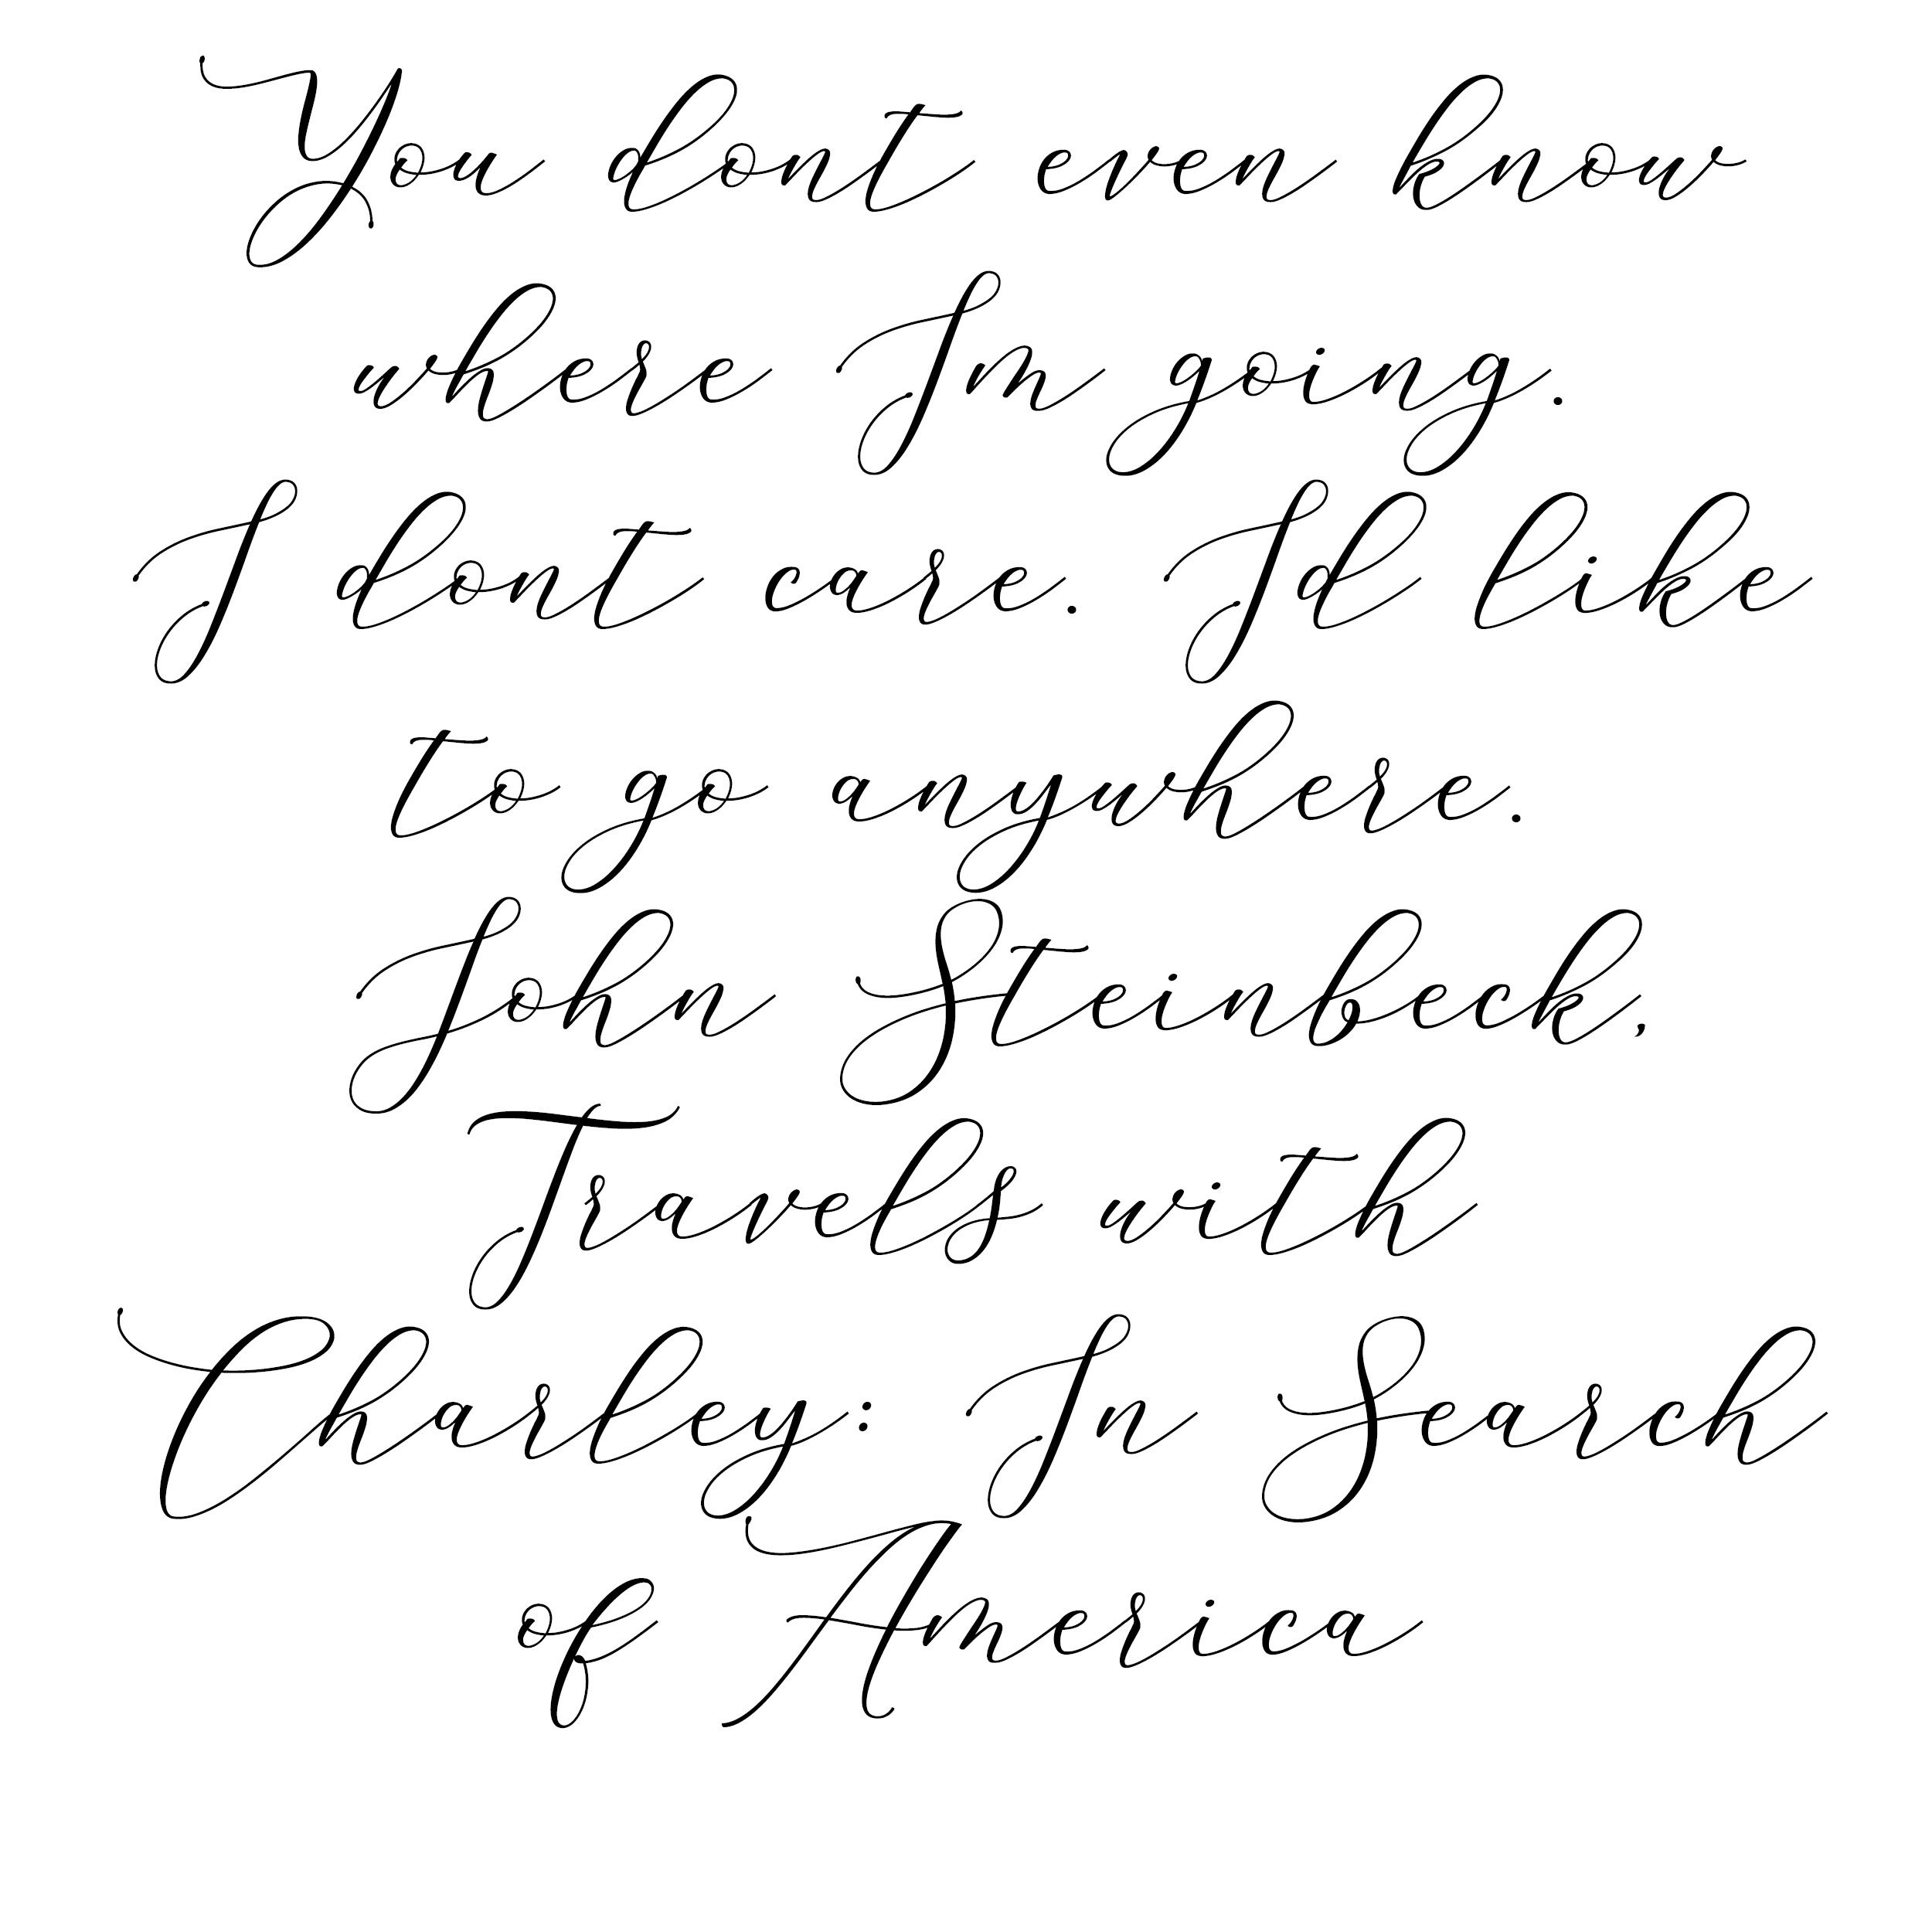 You dont even know
where Im going.
I dont care. Id like
to go anywhere.
John Steinbeck,
Travels with
Charley: In Search
of America